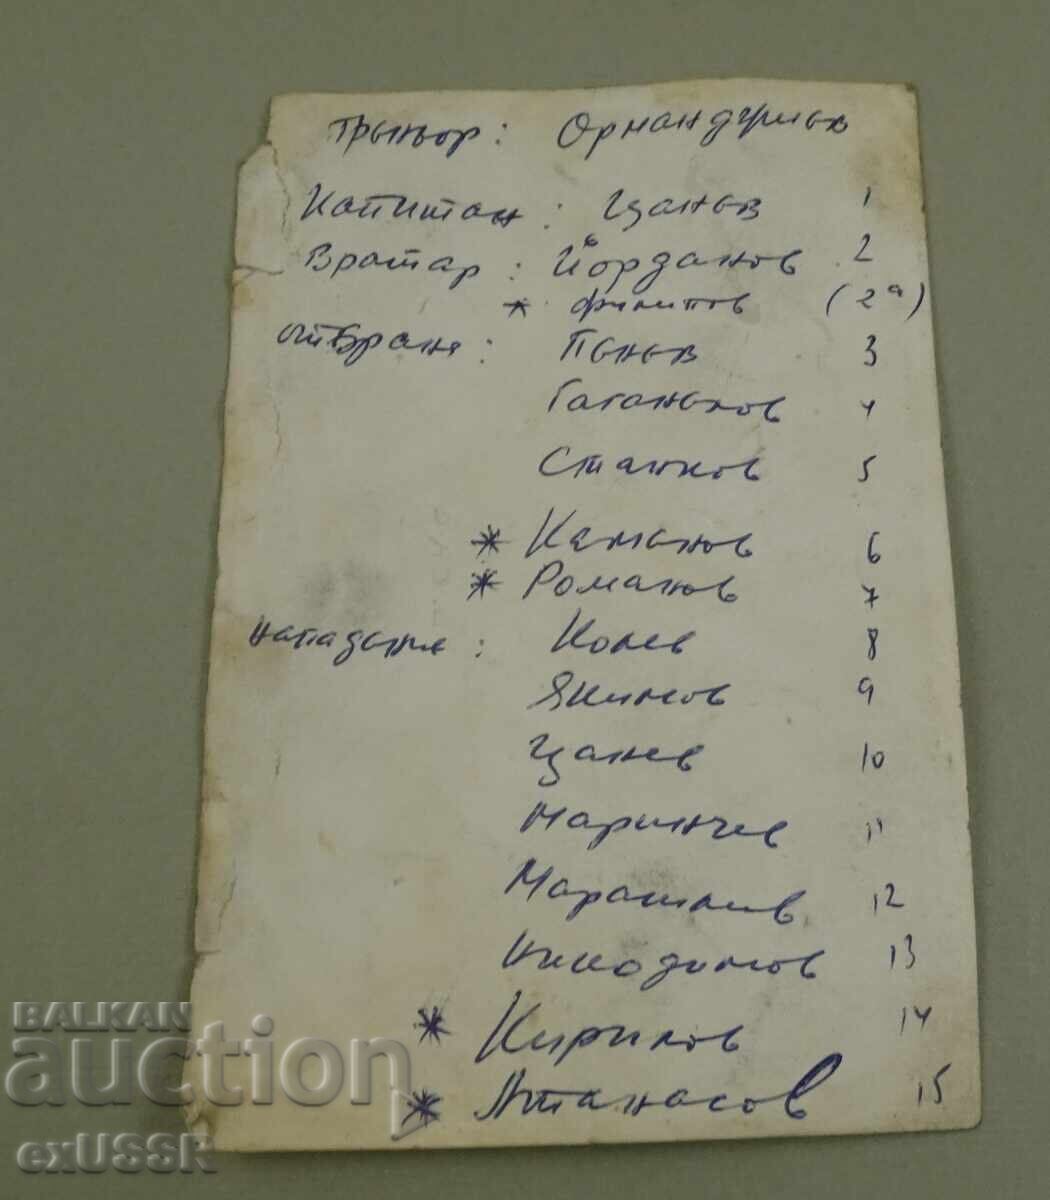 Треньор: Орманджиев
Капитан: Цанев 1
Вратар: Йорданов 2
* Филипов (2а)
Отбрана: Пенев 3
Гаганелов 4
Станков 5
* Каменов 6
* Романов 7
нападение: Колев 8
Якимов 9
Цанев 10
Маринчев 11
Марашлиев 12
Никодимов 13
* Кирилов 14
* Атанасов 15
BALKAN
auction
exUSSR